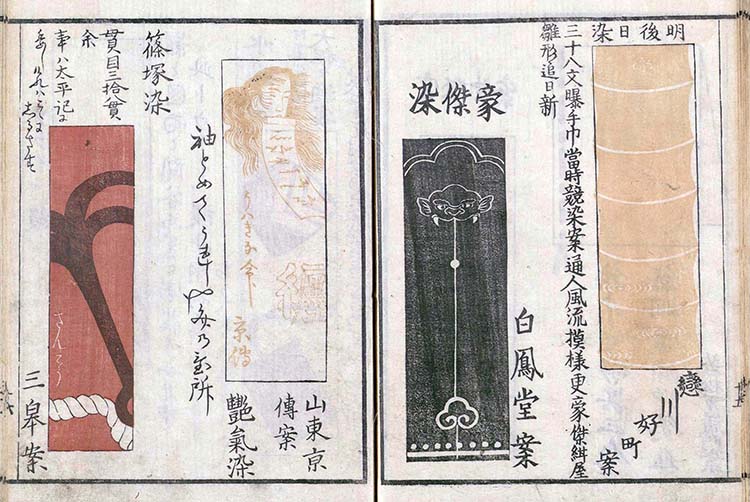 明後日染
三十八文曝手巾當時競染案通人風流摸様更豪傑紺屋
雛形追日新
戀川好町案
豪傑染
白鳳堂案
艷氣染
山東亰傳案
京傳
袖とめてうれしや
篠塚染
貫目三拾貫
余
事ハ太平記に
さんこう
三皐案